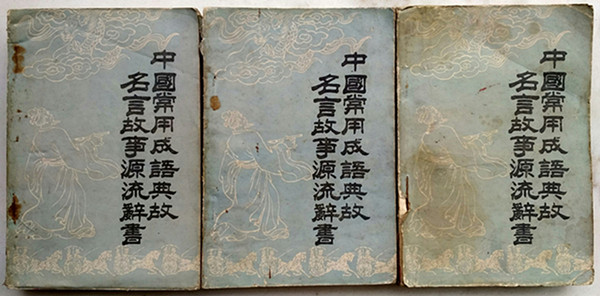 中國常用成語典故
名言故事源流辭書
中國常用成語典故
名言故事源流辭書
中國常用成語典故
名言故事源流辭書